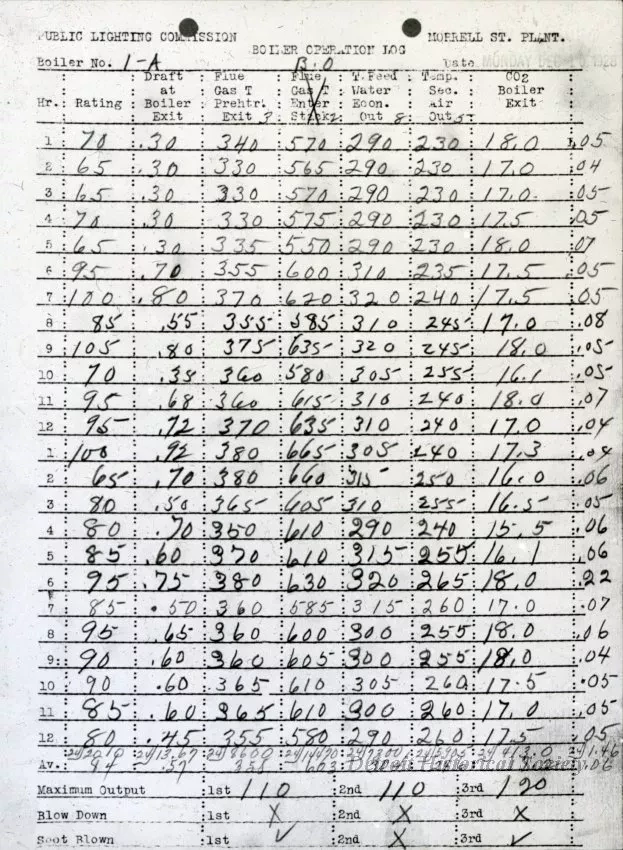 PUBLIC LIGHTING COMMISSION MORRELL ST. PLANT.
BOILER OPERATION LOG
Boiler No. 1-A B.O Date MONDAY DEC 1928
Draft : Flue : Flue : T.Feed : Temp. : CO2
at : Gas T : Gas T : Water : Sec. : Boiler
Boiler : Prehtr. : Enter : Econ. : Air : Exit
Hr.: Rating : Exit : Exit : Stack : Out 8 : Out 5 :
1 : 70 : .30 : 340 : 570 : 290 : 230 : 18.0 : .05
2 : 65 : .30 : 330 : 565 : 290 : 230 : 17.0 : .04
3 : 65 : .30 : 330 : 570 : 290 : 230 : 17.0 : .05
4 : 70 : .30 : 330 : 575 : 290 : 230 : 17.5 : .05
5 : 65 : .30 : 335 : 550 : 290 : 230 : 18.0 : .07
6 : 95 : .70 : 355 : 600 : 310 : 235 : 17.5 : .05
7 : 100 : .80 : 370 : 620 : 320 : 240 : 17.5 : .05
8 : 85 : .55 : 355 : 585 : 310 : 245 : 17.0 : .08
9 : 105 : .80 : 375 : 635 : 320 : 245 : 18.0 : .05
10 : 70 : .35 : 360 : 580 : 305 : 255 : 16.1 : .05
11 : 95 : .68 : 360 : 615 : 310 : 240 : 18.0 : .07
12 : 95 : .72 : 370 : 635 : 310 : 240 : 17.0 : .04
1 : 100 : .92 : 380 : 665 : 305 : 240 : 17.3 : .04
2 : 65 : .70 : 380 : 660 : 315 : 250 : 16.0 : .06
3 : 80 : .50 : 365 : 605 : 310 : 255 : 16.5 : .05
4 : 80 : .70 : 350 : 610 : 290 : 240 : 15.5 : .06
5 : 85 : .60 : 370 : 610 : 315 : 255 : 16.1 : .06
6 : 95 : .75 : 380 : 630 : 320 : 265 : 18.0 : .22
7 : 85 : .50 : 360 : 585 : 315 : 260 : 17.0 : .07
8 : 95 : .65 : 360 : 600 : 300 : 255 : 18.0 : .06
9 : 90 : .60 : 360 : 605 : 300 : 255 : 18.0 : .04
10 : 90 : .60 : 365 : 610 : 305 : 260 : 17.5 : .05
11 : 85 : .60 : 365 : 610 : 300 : 260 : 17.0 : .05
12 : 80 : .45 : 355 : 580 : 290 : 260 : 17.5 : .05
24/13.67 24/8600 24/413.0 24/1.46
Av.: .57 358 603 .06
Detroit Historical Society
Maximum Output : 1st 110 : 2nd 110 : 3rd 120
Blow Down : 1st X : 2nd X : 3rd X
Soot Blown : 1st ✓ : 2nd X : 3rd ✓